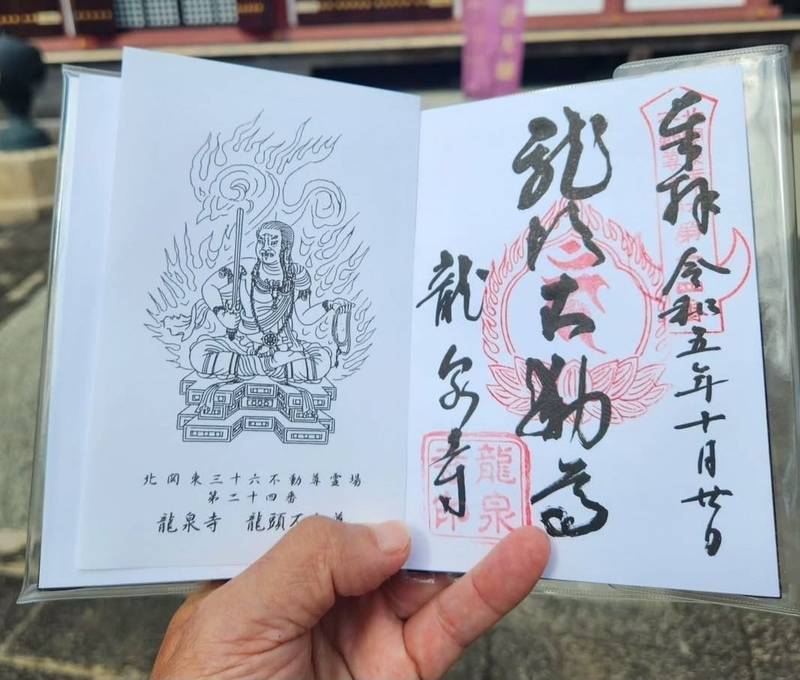 北関東三十六不動尊霊場
第二十四番
龍泉寺 龍頭不動尊
奉拝 令和五年十月廿日
龍頭不動尊
龍泉寺
龍泉寺印